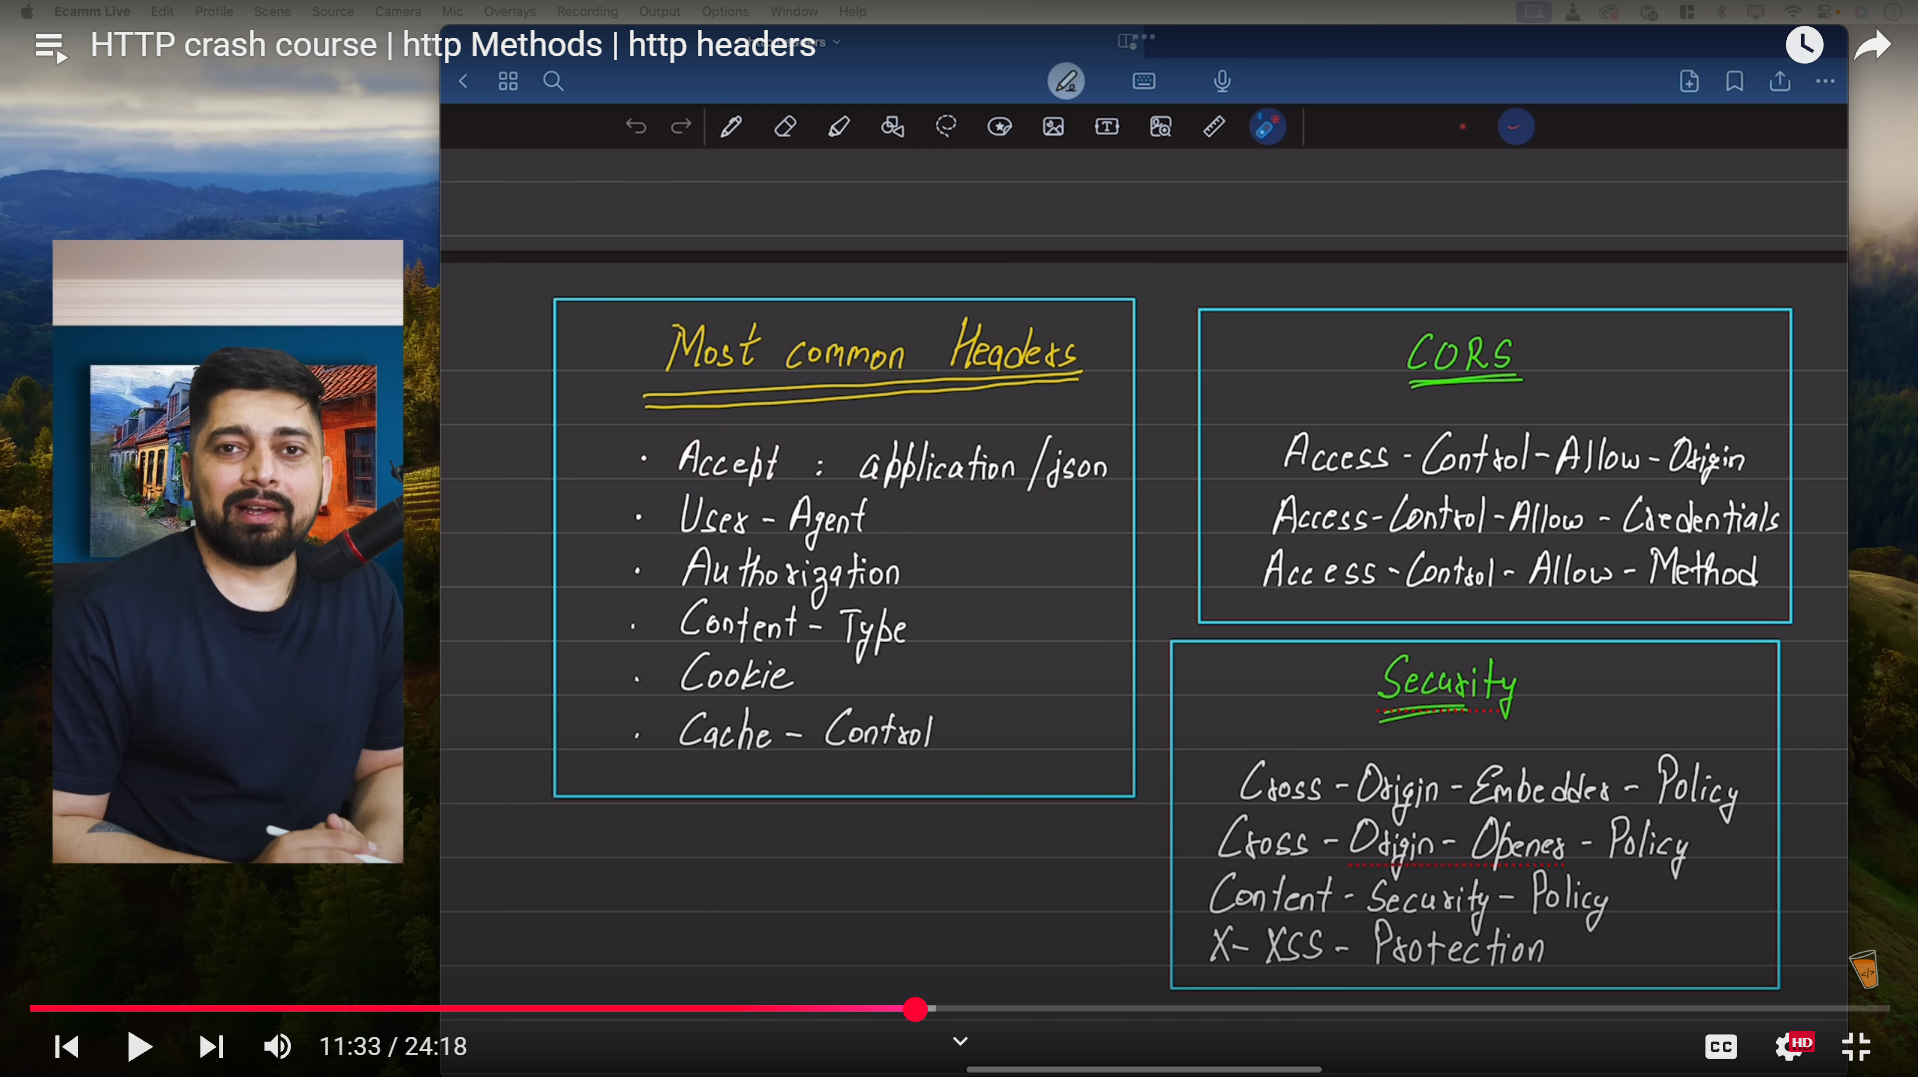 Ecamm Live Edit Profile Scene Source Camera Mic Overlays Recording Output Options Window Help
HTTP crash course | http Methods | http headers
Most common Headers
· Accept : application/json
· User-Agent
· Authorization
· Content-Type
· Cookie
· Cache-Control
CORS
Access-Control-Allow-Origin
Access-Control-Allow-Credentials
Access-Control-Allow-Method
Security
Cross-Origin-Embedder-Policy
Cross-Origin-Opener-Policy
Content-Security-Policy
X-XSS-Protection
11:33 / 24:18
CC
HD